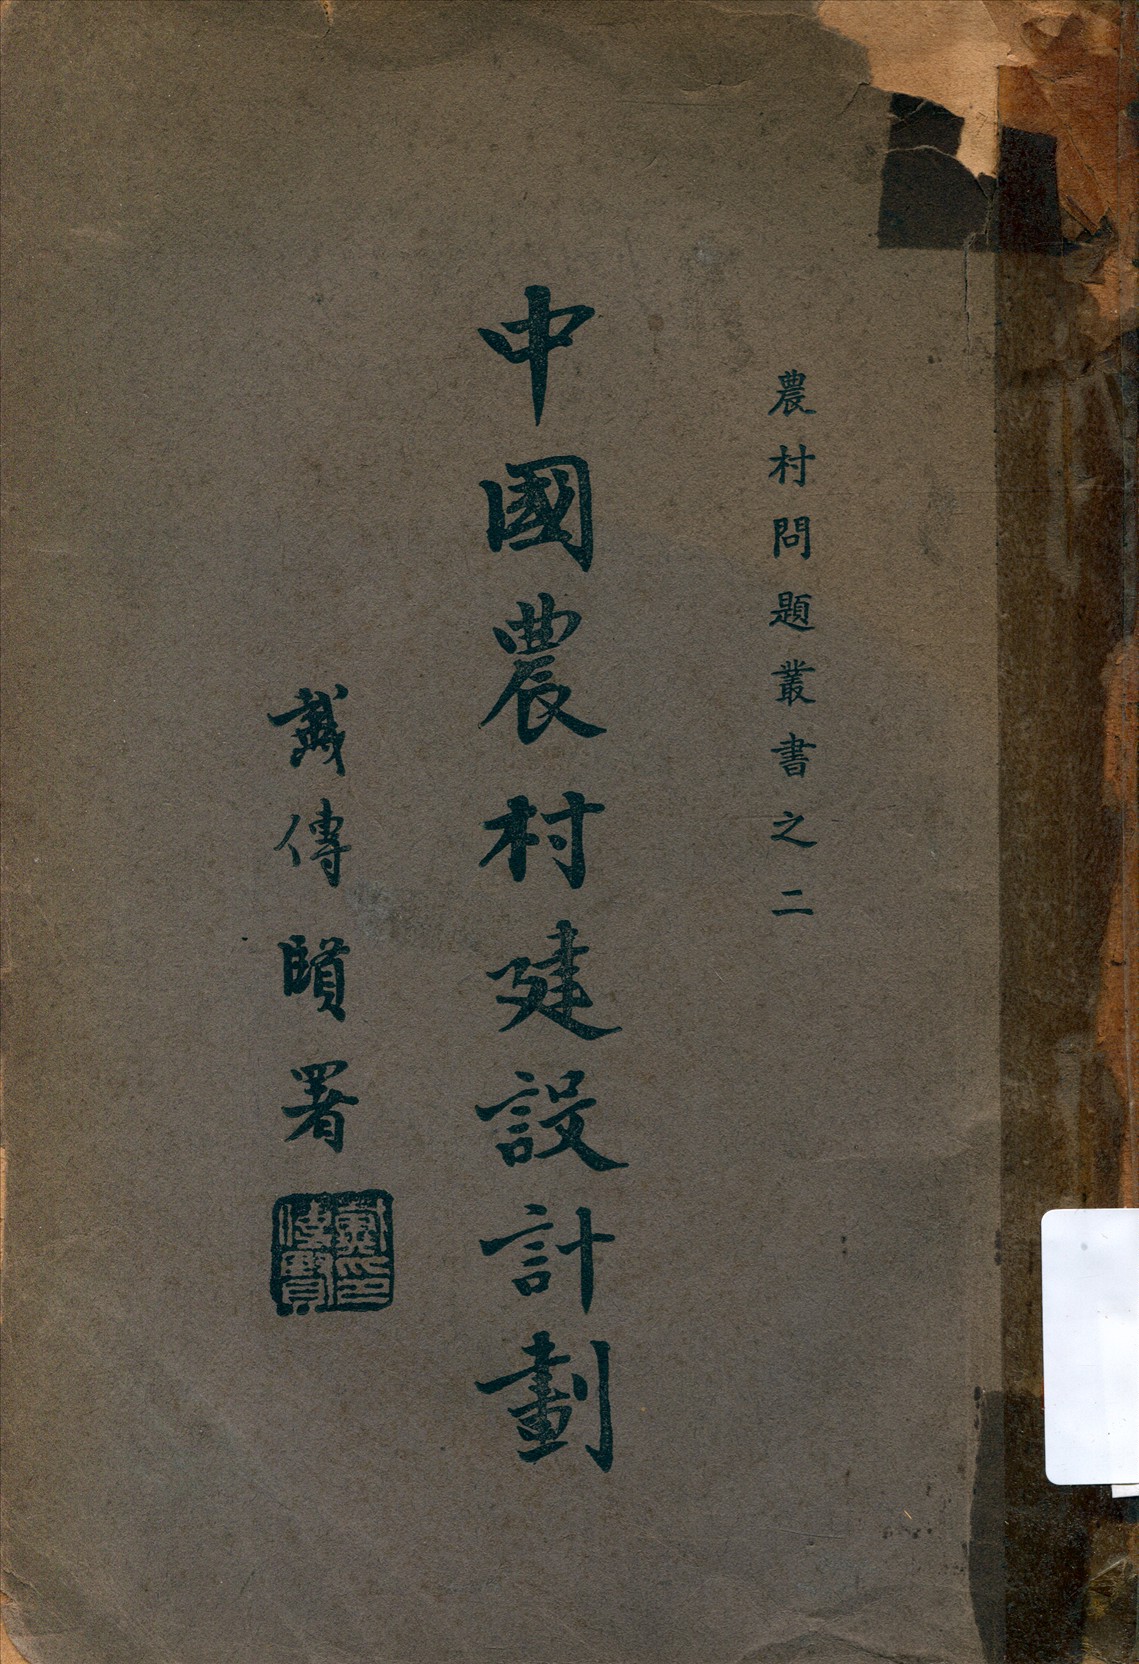 農村問題叢書之二
中國農村建設計劃
戴傳賢署
戴傳賢印